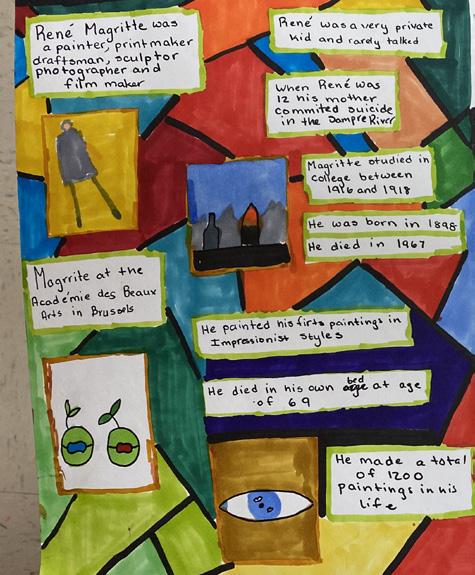 René Magritte was
a painter, printmaker
draftsman, sculptor
photographer and
film maker
René was a very private
kid and rarely talked
When René was
12 his mother
commited suicide
in the Sampre River
Magritte studied in
college between
1916 and 1918
He was born in 1898
He died in 1967
Magrite at the
Académie des Beaux
Arts in Brussels
He painted his firts paintings in
Impressionist styles
He died in his own bed at age
of 69
He made a total
of 1200
paintings in his
life